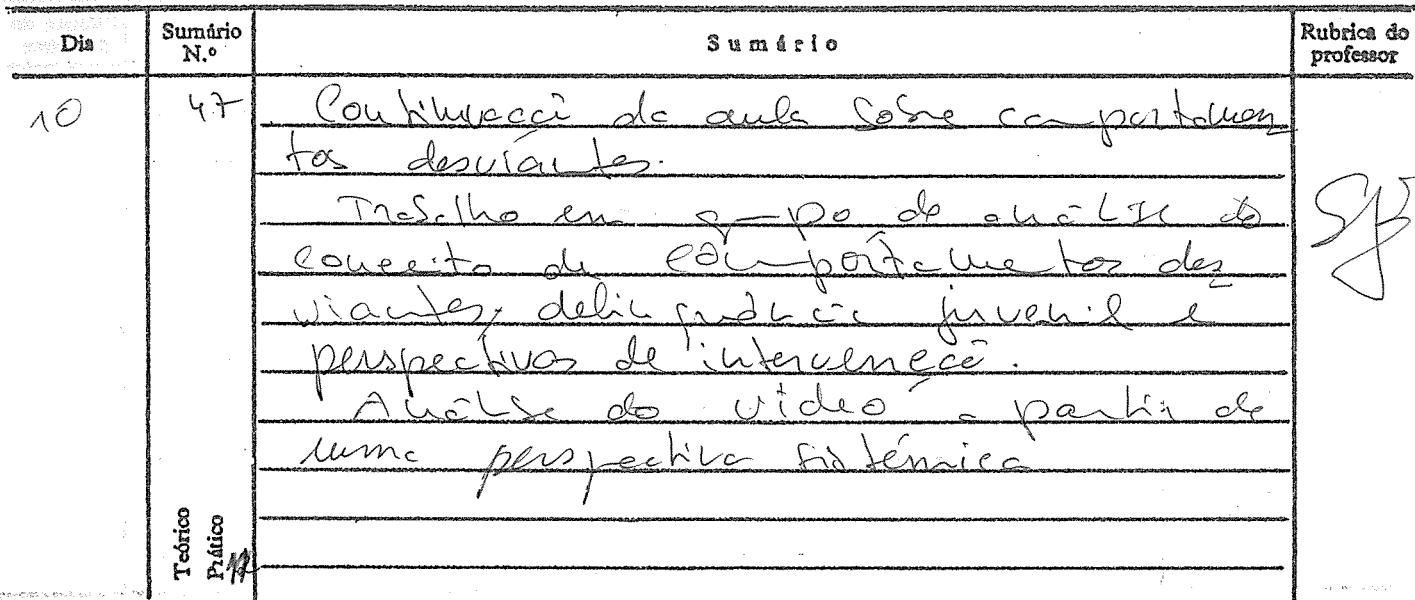 Dia Sumário N.º Sumário Rubrica do professor
10 47 . Continuação da aula sobre comportamen
tos desviantes.
Trabalho em grupo de análise do
conceito de comportamentos des
viantes, delinquência juvenil e
perspectivas de intervenção.
Análise do vídeo a partir de
uma perspectiva sistémica
Teórico
Prático